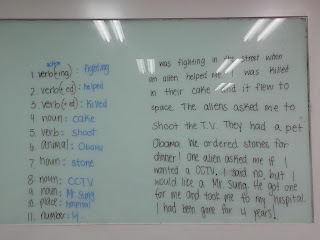 action
1. verb(+ing): fighting
2. verb(+ed): helped
3. verb(+ed): killed
4. noun: cake
5. verb: shoot
6. animal: Obama
7. noun: stone
8. noun: CCTV
9. noun: Mr Sung
10. place: hospital
11. number: 4
I was fighting in the street when
an alien helped me. I was killed
in their cake and it flew to
space. The aliens asked me to
shoot the T.V. They had a pet
Obama. We ordered stones for
dinner! One alien asked me if I
wanted a CCTV. I said no, but I
would like a Mr Sung. He got one
for me and took me to my hospital.
I had been gone for 4 years!